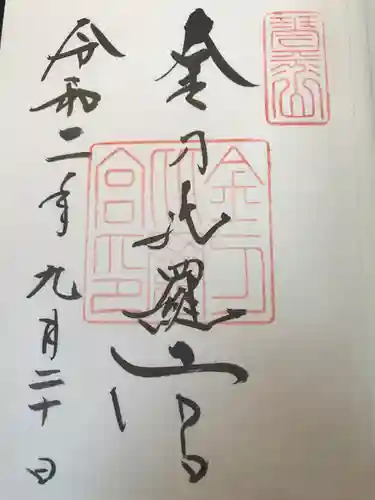 金刀比羅宮
令和二年九月二十日
金刀
比羅
宮印